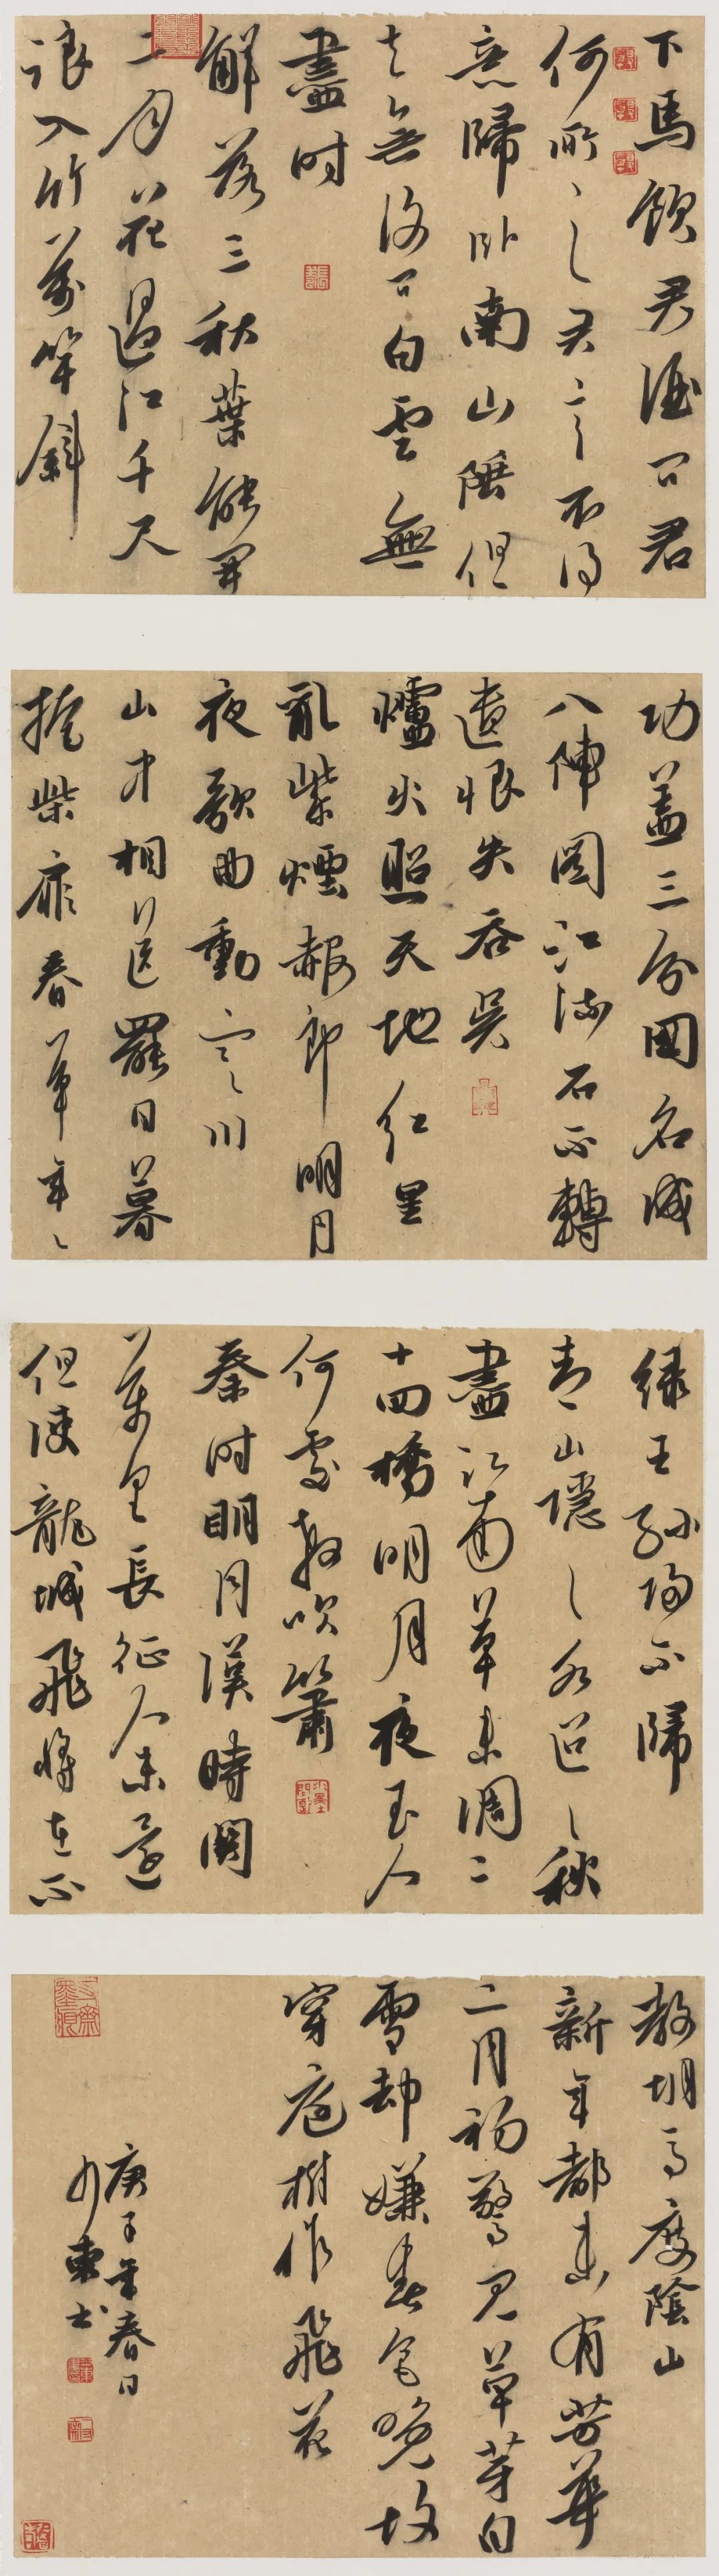 下馬飲君酒問君
何所之君言不得
意歸臥南山陲但
去無復問白雲無
盡时
解落三秋葉能開
二月花過江千尺
浪入竹萬竿斜
功蓋三分國名成
八陣圖江流石不轉
遺恨失吞吳
爐火照天地红星
亂紫煙赧郎明月
夜歌曲動寒川
山中相送罷日暮
掩柴扉春草年年
绿王孙归不歸
青山隱隱水迢迢秋
盡江南草未凋二
十四橋明月夜玉人
何處教吹簫
秦时明月漢時關
萬里長征人未還
但使龍城飛將在不
教胡马度陰山
新年都未有芳華
二月初驚见草芽白
雪却嫌春色晚故
穿庭樹作飛花
庚子年春日
東书